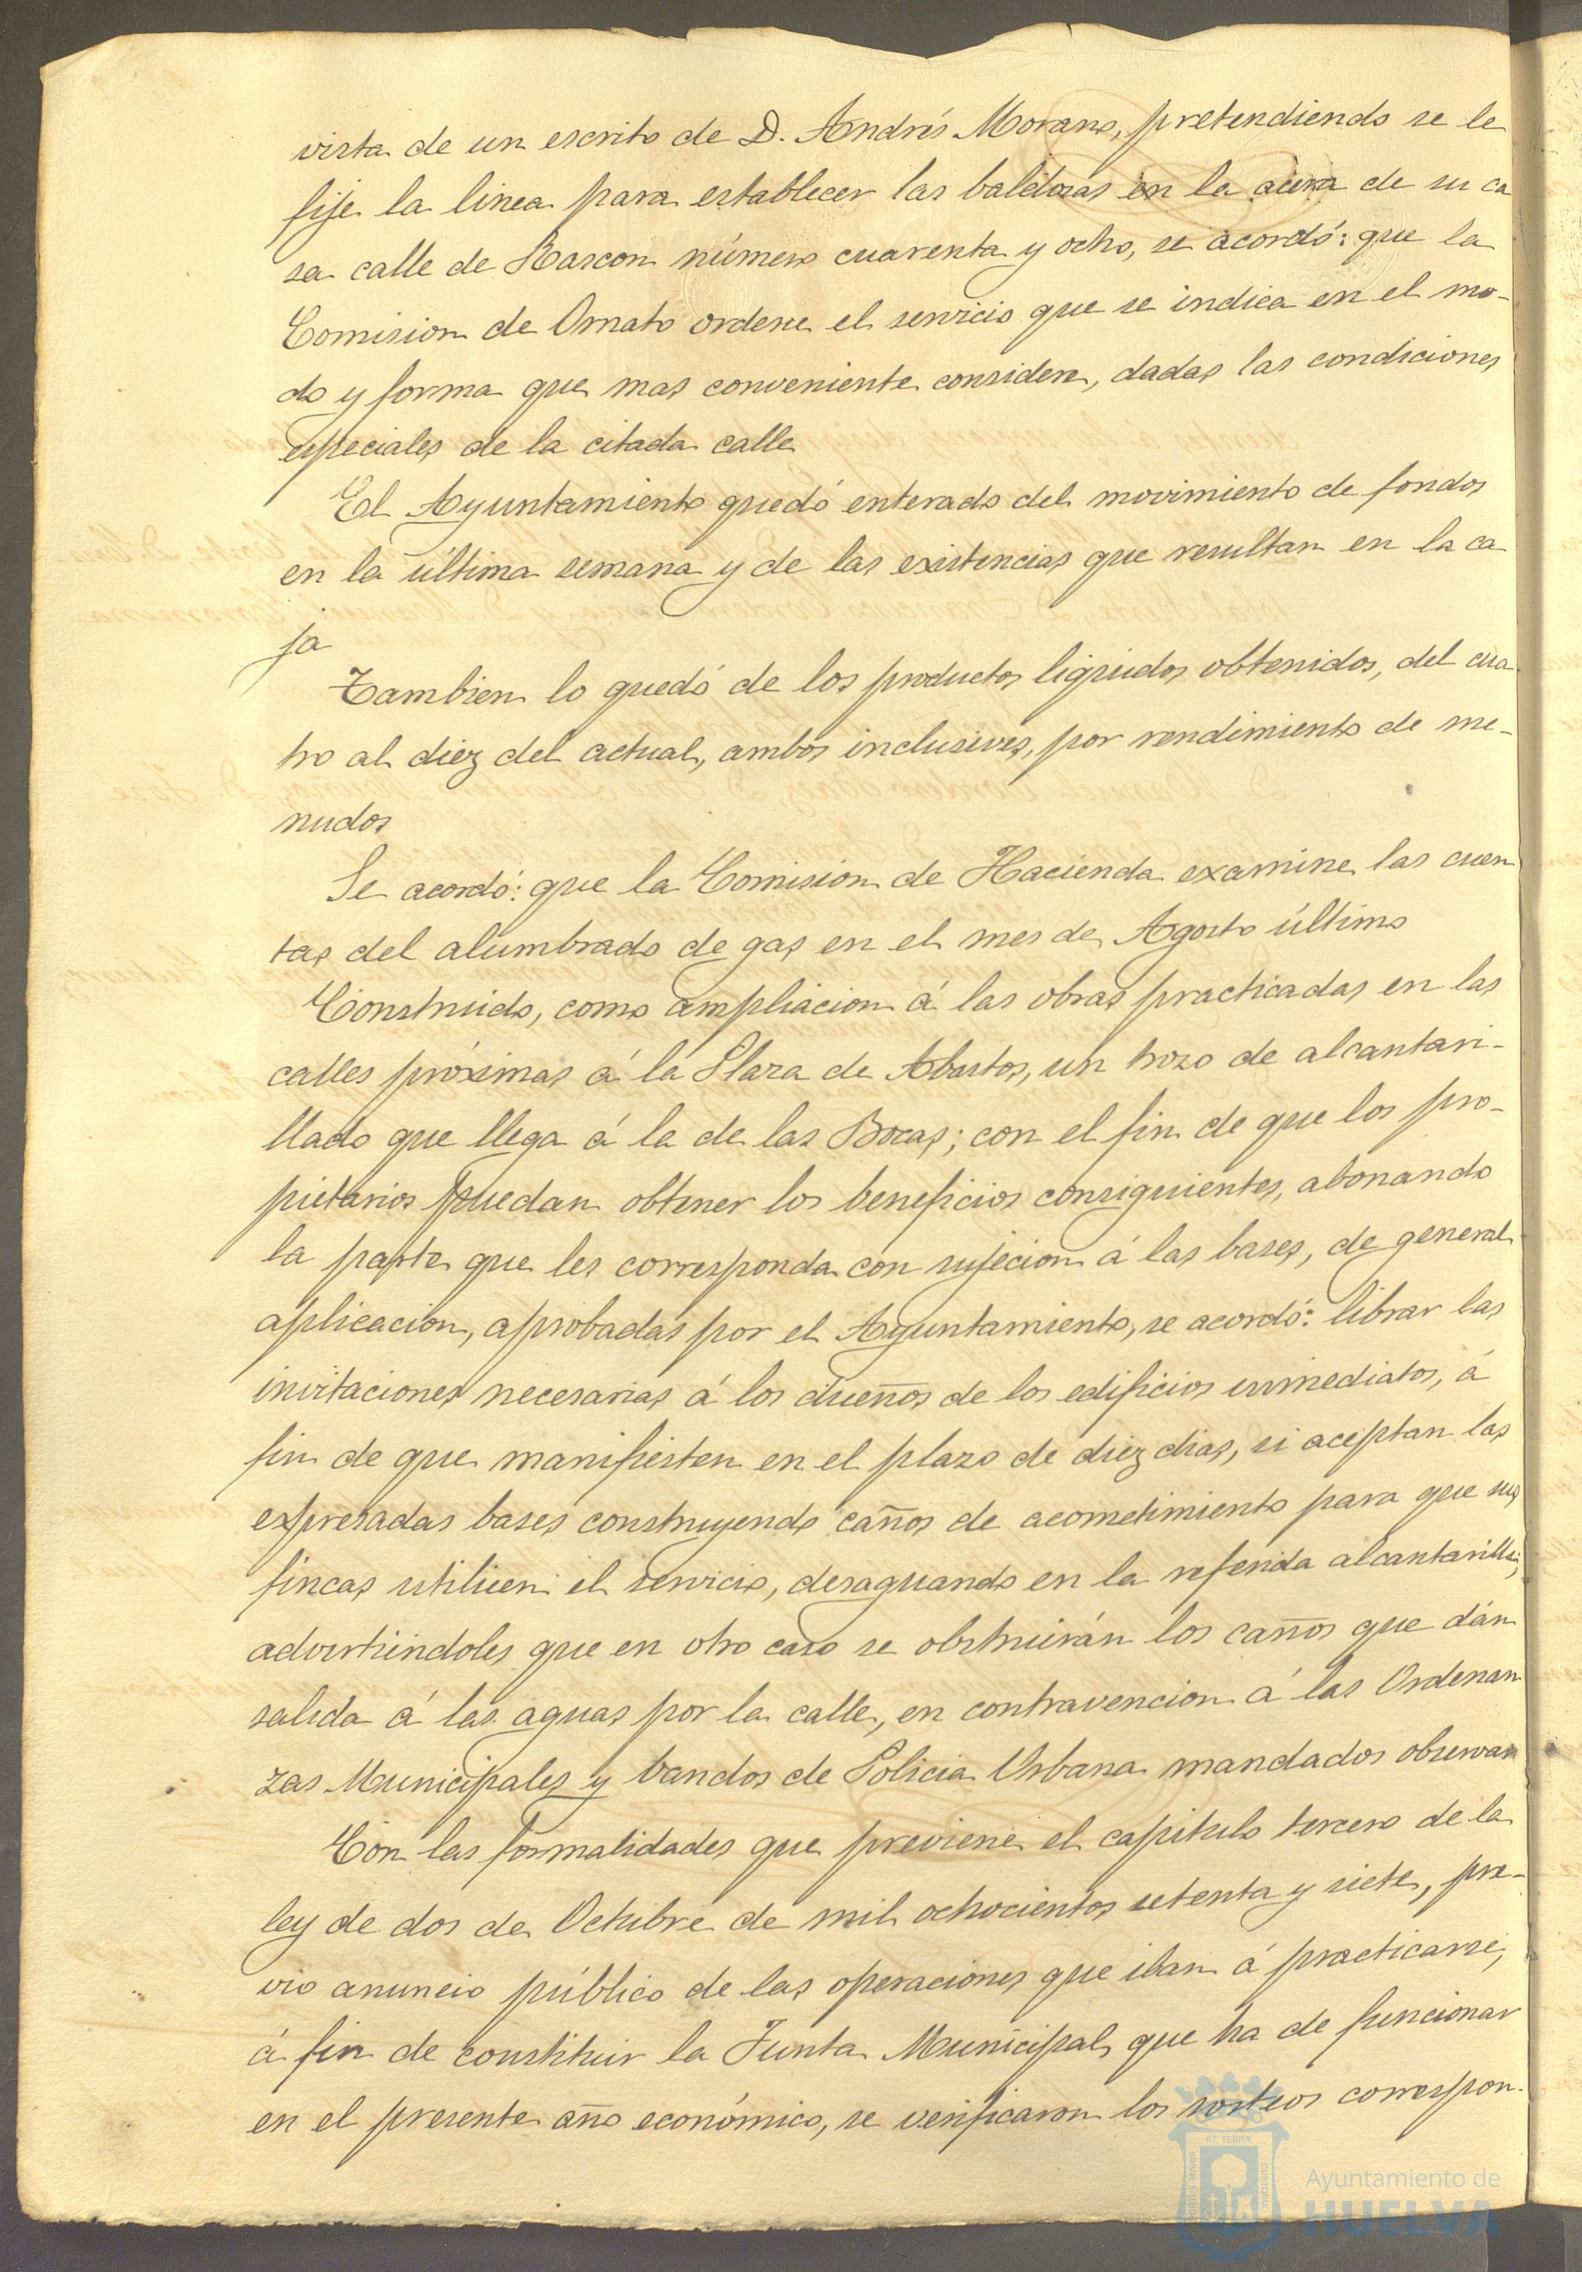 vista de un escrito de D. Andrés Morano, pretendiendo se le
fije la linea para establecer las baldosas en la acera de su ca
sa calle de Rascon número cuarenta y ocho, se acordó: que la
Comision de Ornato ordene el servicio que se indica en el mo-
do y forma que mas conveniente considere, dadas las condiciones
especiales de la citada calle
El Ayuntamiento quedó enterado del movimiento de fondos
en la última semana y de las existencias que resultan en la ca
ja
Tambien lo quedó de los productos liquidos obtenidos, del cua
tro al diez del actual, ambos inclusives, por rendimiento de me-
nudos
Se acordó: que la Comision de Hacienda examine las cuen
tas del alumbrado de gas en el mes de Agosto último
Construido, como ampliacion á las obras practicadas en las
calles próximas á la Plaza de Abastos, un trozo de alcantari-
llado que llega á la de las Bocas; con el fin de que los pro-
pietarios puedan obtener los beneficios consiguientes, abonando
la parte que les corresponda con sujecion á las bases, de general
aplicacion, aprobadas por el Ayuntamiento, se acordó: librar las
invitaciones necesarias á los dueños de los edificios inmediatos, á
fin de que manifiesten en el plazo de diez dias, si aceptan las
expresadas bases construyendo caños de acometimiento para que sus
fincas utilicen el servicio, desaguando en la referida alcantarilla;
advirtiéndoles que en otro caso se obstruirán los caños que dán
salida á las aguas por la calle, en contravencion á las Ordenan
zas Municipales y bandos de Policia Urbana mandados observar
Con las formalidades que previene el capitulo tercero de la
ley de dos de Octubre de mil ochocientos setenta y siete, pre-
vio anuncio público de las operaciones que iban á practicarse,
á fin de constituir la Junta Municipal que ha de funcionar
en el presente año económico, se verificaron los sorteos correspon-
ET TERRÆ
CUSTODIA
Ayuntamiento de
HUELVA